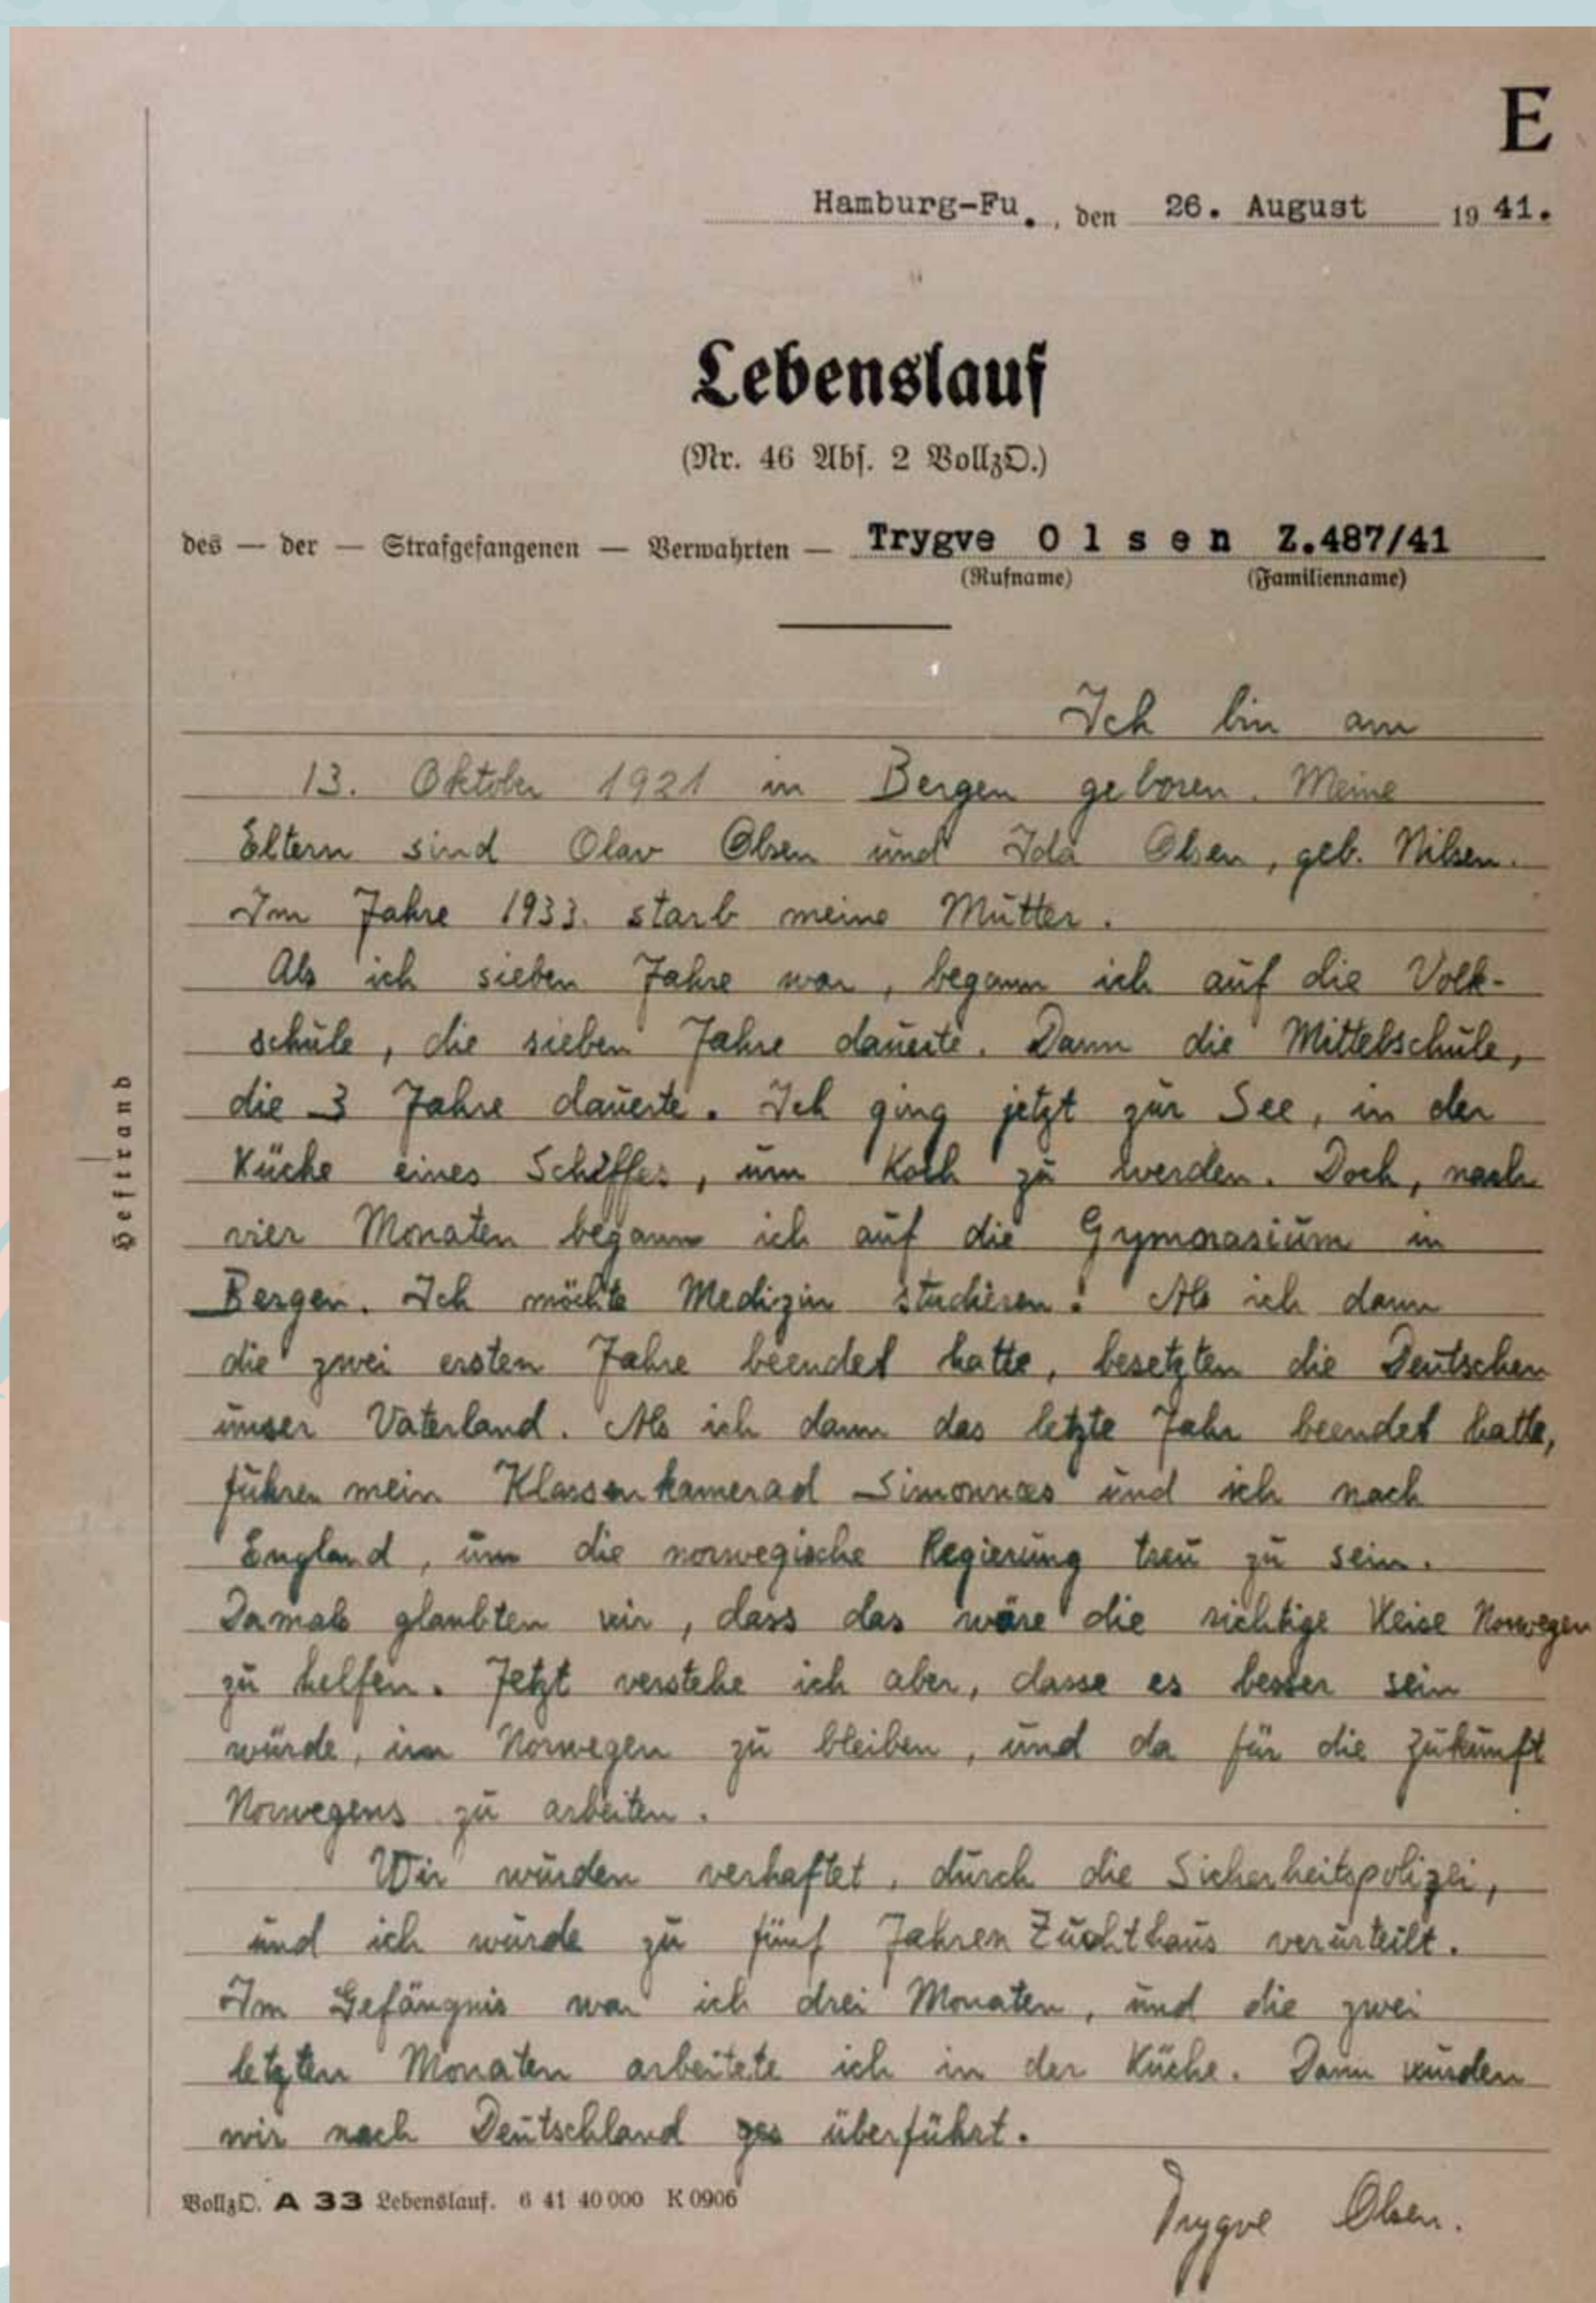 E
Hamburg-Fu., den 26. August 1941.
Lebenslauf
(Nr. 46 Abs. 2 VollzO.)
des — der — Strafgefangenen — Verwahrten — Trygve Olsen Z.487/41
(Rufname) (Familienname)
Ich bin am
13. Oktober 1921 in Bergen geboren. Meine
Eltern sind Olav Olsen und Ida Olsen, geb. Nilsen.
Im Jahre 1933. starb meine Mutter.
Als ich sieben Jahre war, begann ich auf die Volk-
schule, die sieben Jahre dauerte. Dann die Mittelschule,
die 3 Jahre dauerte. Ich ging jetzt zur See, in der
Küche eines Schiffes, um Koch zu werden. Doch, nach
vier Monaten begann ich auf die Gymnasium in
Bergen. Ich möchte Medizin studieren! Als ich dann
die zwei ersten Jahre beendet hatte, besetzten die Deutschen
unser Vaterland. Als ich dann das letzte Jahr beendet hatte,
fuhren mein Klassenkamerad Simonnæs und ich nach
England, um die norwegische Regierung treu zu sein.
Damals glaubten wir, dass das wäre die richtige Weise Norwegen
zu helfen. Jetzt verstehe ich aber, dasse es besser sein
würde, im Norwegen zu bleiben, und da für die Zukunft
Norwegens zu arbeiten.
Wir wurden verhaftet, durch die Sicherheitspolizei,
und ich wurde zu fünf Jahren Zuchthaus verurteilt.
Im Gefängnis war ich drei Monaten, und die zwei
letzten Monaten arbeitete ich in der Küche. Dann wurden
wir nach Deutschland ges überführt.
Trygve Olsen.
VollzO. A 33 Lebenslauf. 6 41 40 000 K 0906
Heftrand